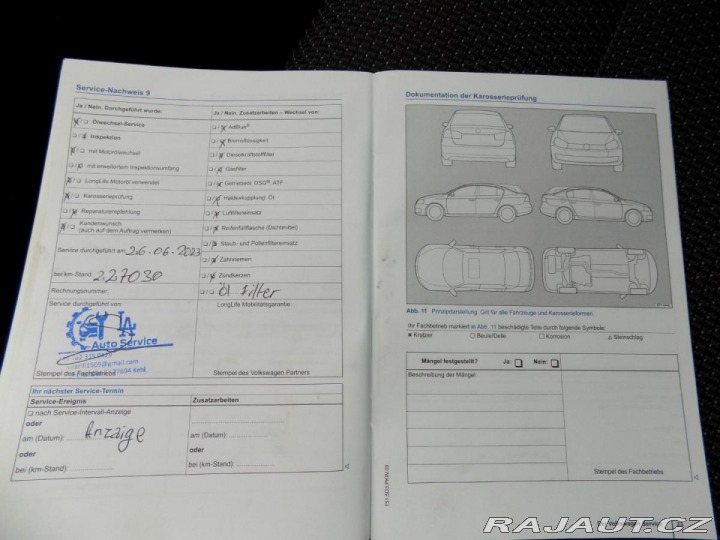 Service-Nachweis 9
Ja / Nein. Durchgeführt wurde:
Ölwechsel-Service
Inspektion
mit Motorölwechsel
mit erweitertem Inspektionsumfang
LongLife Motoröl verwendet
Karosserieprüfung
Reparaturempfehlung
Kundenwunsch
(auch auf dem Auftrag vermerken)
Service durchgeführt am: 26.06.2023
bei km-Stand: 227030
Rechnungsnummer:
Service durchgeführt von:
Auto Service
Stempel des Fachbetriebs
Ja / Nein. Zusatzarbeiten – Wechsel von:
AdBlue®
Bremsflüssigkeit
Dieselkraftstofffilter
Gasfilter
Getriebeöl: DSG®, ATF
Haldexkupplung: Öl
Luftfiltereinsatz
Reifenfüllflasche (Dichtmittel)
Staub- und Pollenfiltereinsatz
Zahnriemen
Zündkerzen
Öl Filter
LongLife Mobilitätsgarantie:
Stempel des Volkswagen Partners
Ihr nächster Service-Termin
Service-Ereignis
Zusatzarbeiten
nach Service-Intervall-Anzeige
oder
am (Datum): Anzaige
oder
am (Datum):
oder
bei (km-Stand):
bei (km-Stand):
Dokumentation der Karosserieprüfung
Abb. 11 Prinzipdarstellung: Gilt für alle Fahrzeuge und Karosserieformen.
Ihr Fachbetrieb markiert in Abb. 11 beschädigte Teile durch folgende Symbole:
× Kratzer ○ Beule/Delle □ Korrosion △ Steinschlag
Mängel festgestellt? Ja: Nein:
Beschreibung der Mängel:
Stempel des Fachbetriebs
RAJAUT.CZ